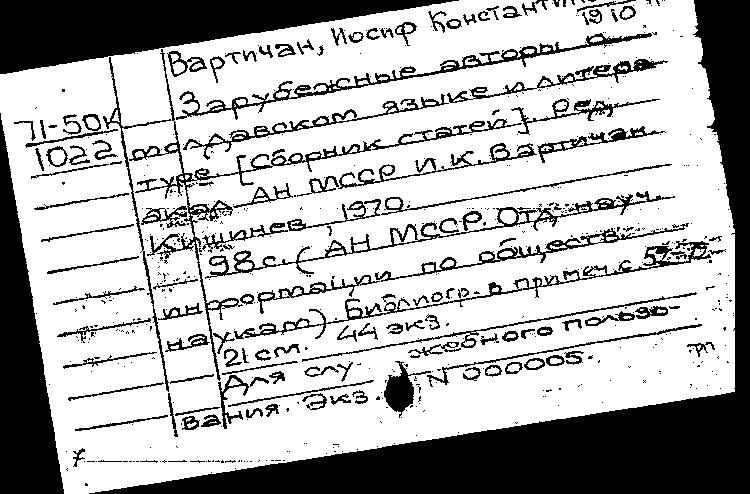 Вартичан, Иосиф Константин
1910
Зарубежные авторы о
71-50к
1022
молдавском языке и литера-
туре [Сборник статей]. Ред.
акад. АН МССР И.К. Вартичан.
Кишинев, 1970.
98 с. (АН МССР. Отд. науч.
информации по обществ.
наукам). Библиогр. в примеч. с 52-72
21 см. 44 экз.
Для слу жебного пользо-
вания. Экз. N 000005.